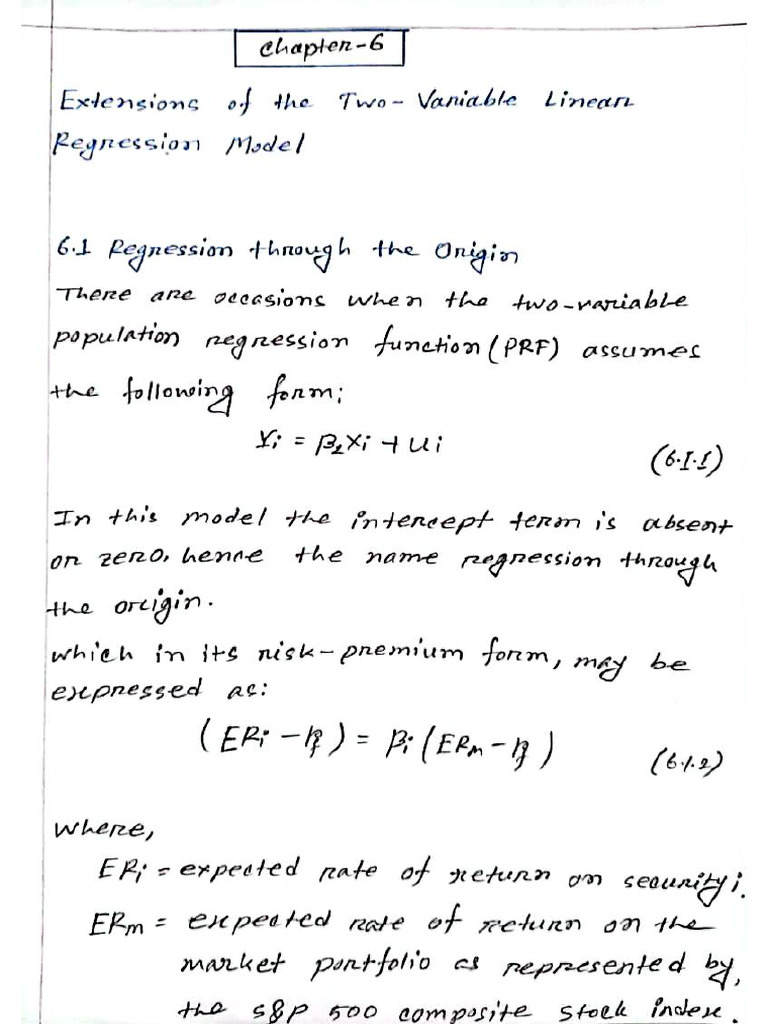 Chapter-6
Extensions of the Two-Variable Linear
Regression Model
6.1 Regression through the Origin
There are occasions when the two-variable
population regression function (PRF) assumes
the following form;
Yi = β2Xi + ui
(6.1.1)
In this model the intercept term is absent
or zero, hence the name regression through
the origin.
which in its risk-premium form, may be
expressed as:
(ERi - rf) = βi (ERm - rf)
(6.1.2)
where,
ERi = expected rate of return on security i.
ERm = expected rate of return on the
market portfolio as represented by,
the S&P 500 composite stock index.